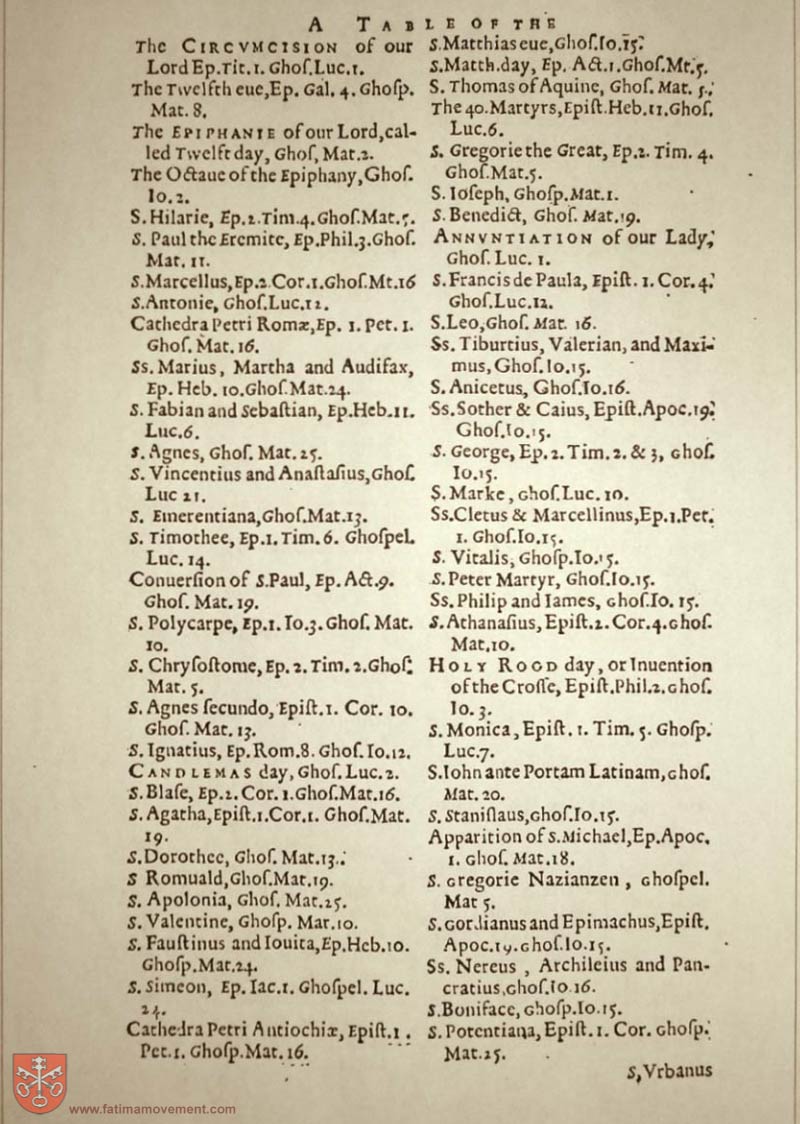 A TABLE OF THE
The CIRCVMCISION of our
Lord Ep.Tit.1. Ghoſ.Luc.1.
The Twelfth eue,Ep. Gal. 4. Ghoſp.
Mat. 8.
The EPIPHANIE of our Lord,cal-
led Twelft day, Ghoſ, Mat.2.
The Octaue of the Epiphany,Ghoſ.
Io.2.
S.Hilarie, Ep.2.Tim.4.Ghoſ.Mat.5.
S. Paul the Eremite, Ep.Phil.3.Ghoſ.
Mat. 11.
S.Marcellus,Ep.2.Cor.1.Ghoſ.Mt.16
S.Antonie, Ghoſ.Luc.12.
Cathedra Petri Romæ,Ep. 1. Pet. 1.
Ghoſ. Mat. 16.
Ss. Marius, Martha and Audifax,
Ep. Heb. 10.Ghoſ.Mat.24.
S. Fabian and Sebaſtian, Ep.Heb.11.
Luc.6.
S. Agnes, Ghoſ. Mat. 25.
S. Vincentius and Anaſtaſius,Ghoſ.
Luc 21.
S. Emerentiana,Ghoſ.Mat.13.
S. Timothee, Ep.1. Tim. 6. Ghoſpel.
Luc. 14.
Conuerſion of S.Paul, Ep. Act.9.
Ghoſ. Mat. 19.
S. Polycarpe, Ep.1. Io.3. Ghoſ. Mat.
10.
S. Chryſoſtome, Ep. 2. Tim. 2.Ghoſ.
Mat. 5.
S. Agnes ſecundo, Epiſt.1. Cor. 10.
Ghoſ. Mat. 13.
S. Ignatius, Ep. Rom.8. Ghoſ. Io.12.
CANDLEMAS day, Ghoſ. Luc. 2.
S. Blaſe, Ep.2. Cor. 1.Ghoſ.Mat.16.
S. Agatha,Epiſt.1.Cor.1. Ghoſ.Mat.
19.
S.Dorothee, Ghoſ. Mat.13.
S Romuald,Ghoſ.Mat.19.
S. Apolonia, Ghoſ. Mat.25.
S. Valentine, Ghoſp. Mat.10.
S. Fauſtinus and Iouita,Ep.Heb.10.
Ghoſp.Mat.24.
S. Simeon, Ep. Iac.1. Ghoſpel. Luc.
24.
Cathedra Petri Antiochiæ, Epiſt.1.
Pet.1. Ghoſp.Mat. 16.
S.Matthias eue,Ghoſ.Io.15.
S.Matth.day, Ep. Act.1.Ghoſ.Mt.5.
S. Thomas of Aquine, Ghoſ. Mat. 5.
The 40.Martyrs,Epiſt.Heb.11.Ghoſ.
Luc.6.
S. Gregorie the Great, Ep.2. Tim. 4.
Ghoſ.Mat.5.
S. Ioſeph, Ghoſp.Mat.1.
S. Benedict, Ghoſ. Mat.19.
ANNVNTIATION of our Lady,
Ghoſ. Luc. 1.
S. Francis de Paula, Epiſt. 1. Cor. 4.
Ghoſ.Luc.12.
S.Leo,Ghoſ. Mat. 16.
Ss. Tiburtius, Valerian, and Maxi-
mus, Ghoſ.Io.15.
S. Anicetus, Ghoſ.Io.16.
Ss.Sother & Caius, Epiſt.Apoc.19.
Ghoſ.Io.15.
S. George, Ep.2. Tim. 2. & 3, Ghoſ.
Io.15.
S. Marke, Ghoſ.Luc. 10.
Ss.Cletus & Marcellinus,Ep.1.Pet.
1. Ghoſ.Io.15.
S. Vitalis, Ghoſp.Io.15.
S. Peter Martyr, Ghoſ.Io.15.
Ss. Philip and Iames, Ghoſ.Io. 15.
S. Athanaſius, Epiſt.2. Cor.4.Ghoſ.
Mat.10.
HOLY ROOD day, or Inuention
of the Croſſe, Epiſt.Phil.2.Ghoſ.
Io. 3.
S. Monica, Epiſt. 1. Tim. 5. Ghoſp.
Luc.7.
S.Iohn ante Portam Latinam,Ghoſ.
Mat. 20.
S. Staniſlaus,Ghoſ.Io.15.
Apparition of S.Michael,Ep.Apoc.
1. Ghoſ. Mat.18.
S. Gregorie Nazianzen, Ghoſpel.
Mat 5.
S.Gordianus and Epimachus,Epiſt.
Apoc.19.Ghoſ.Io.15.
Ss. Nereus, Archileius and Pan-
cratius,Ghoſ.Io 16.
S.Boniface, Ghoſp.Io.15.
S. Potentiana, Epiſt. 1. Cor. Ghoſp.
Mat.25.
S,Vrbanus
www.fatimamovement.com